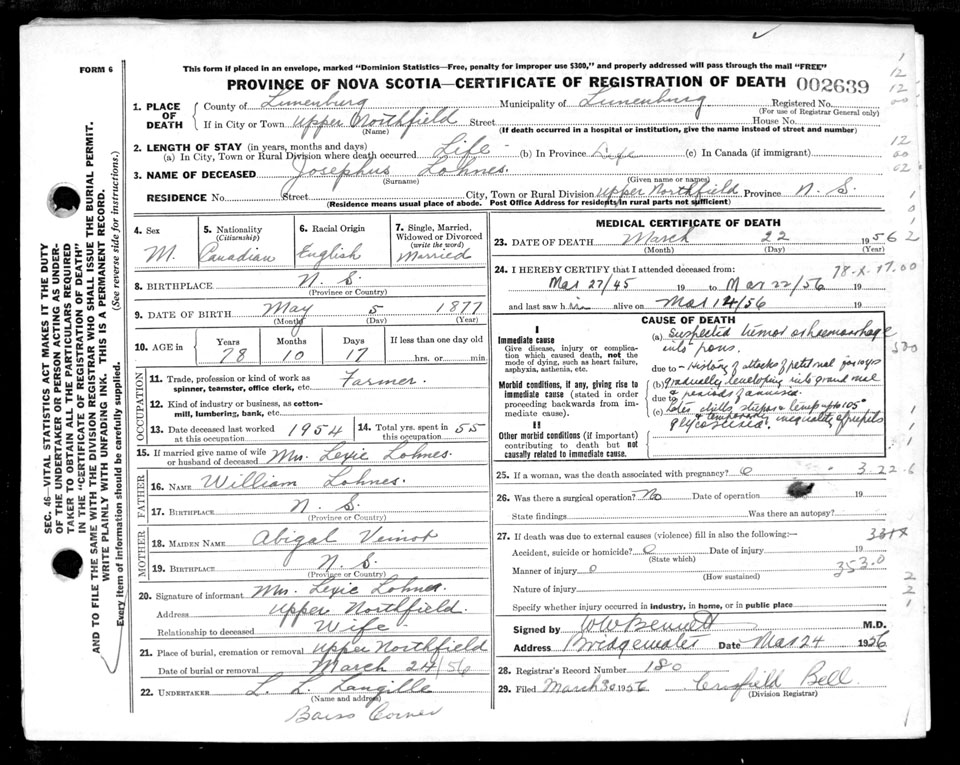 FORM 6
This form if placed in an envelope, marked "Dominion Statistics—Free, penalty for improper use $300," and properly addressed will pass through the mail "FREE"
PROVINCE OF NOVA SCOTIA—CERTIFICATE OF REGISTRATION OF DEATH 002639
SEC. 46—VITAL STATISTICS ACT MAKES IT THE DUTY
OF THE UNDERTAKER OR PERSON ACTING AS UNDER-
TAKER TO OBTAIN ALL THE PARTICULARS REQUIRED
IN THE "CERTIFICATE OF REGISTRATION OF DEATH"
AND TO FILE THE SAME WITH THE DIVISION REGISTRAR WHO SHALL ISSUE THE BURIAL PERMIT.
WRITE PLAINLY WITH UNFADING INK. THIS IS A PERMANENT RECORD.
Every item of information should be carefully supplied. (See reverse side for instructions.)
1. PLACE OF DEATH County of Lunenburg Municipality of Lunenburg Registered No.
(For use of Registrar General only)
If in City or Town Upper Northfield Street House No.
(Name) (If death occurred in a hospital or institution, give the name instead of street and number)
2. LENGTH OF STAY (in years, months and days)
(a) In City, Town or Rural Division where death occurred Life - (b) In Province Life (c) In Canada (if immigrant)
3. NAME OF DECEASED Josephus Lohnes.
(Surname) (Given name or names)
RESIDENCE No. Street City, Town or Rural Division Upper Northfield Province N. S.
(Residence means usual place of abode. Post Office Address for residents in rural parts not sufficient)
4. Sex M.
5. Nationality (Citizenship) Canadian
6. Racial Origin English
7. Single, Married, Widowed or Divorced (write the word) Married
8. BIRTHPLACE N. S.
(Province or Country)
9. DATE OF BIRTH May 5 1877
(Month) (Day) (Year)
10. AGE in Years Months Days If less than one day old
78 10 17 hrs. or min.
OCCUPATION
11. Trade, profession or kind of work as spinner, teamster, office clerk, etc. Farmer.
12. Kind of industry or business, as cotton-mill, lumbering, bank, etc.
13. Date deceased last worked at this occupation 1954 14. Total yrs. spent in this occupation 55
15. If married give name of wife or husband of deceased Mrs. Lexie Lohnes.
FATHER
16. NAME William Lohnes.
17. BIRTHPLACE N. S.
(Province or Country)
MOTHER
18. MAIDEN NAME Abigal Veinot
19. BIRTHPLACE N. S.
(Province or Country)
20. Signature of informant Mrs. Lexie Lohnes
Address Upper Northfield.
Relationship to deceased Wife -
21. Place of burial, cremation or removal Upper Northfield
Date of burial or removal March 24/56
22. UNDERTAKER L. L. Langille
(Name and address)
Barss Corner
MEDICAL CERTIFICATE OF DEATH
23. DATE OF DEATH March 22 1956
(Month) (Day) (Year)
24. I HEREBY CERTIFY that I attended deceased from:
Mar 27/45 19 to Mar 22/56 19
and last saw him alive on Mar 14/56 19
CAUSE OF DEATH
I
Immediate cause
Give disease, injury or complication which caused death, not the mode of dying, such as heart failure, asphyxia, asthenia, etc.
Morbid conditions, if any, giving rise to immediate cause (stated in order proceeding backwards from immediate cause).
II
Other morbid conditions (if important) contributing to death but not causally related to immediate cause.
(a) Suspected tumor or haemorrhage
into pons.
due to - History of attacks of petit mal for 10 yrs
(b) gradually developing into grand mal
due to & periods of
(c) Later chills, & temp up to 105°
& temporary inequality of pupils
25. If a woman, was the death associated with pregnancy? 0
26. Was there a surgical operation? No Date of operation 19
State findings Was there an autopsy?
27. If death was due to external causes (violence) fill in also the following:—
Accident, suicide or homicide? 0 Date of injury 19
(State which)
Manner of injury 0
(How sustained)
Nature of injury
Specify whether injury occurred in industry, in home, or in public place
Signed by W W Bennett M.D.
Address Bridgewater Date Mar 24 1956
28. Registrar's Record Number 180
29. Filed March 30 1956 Crisfield Bell
(Division Registrar)
78-X-17.00
3-22-6
353.0